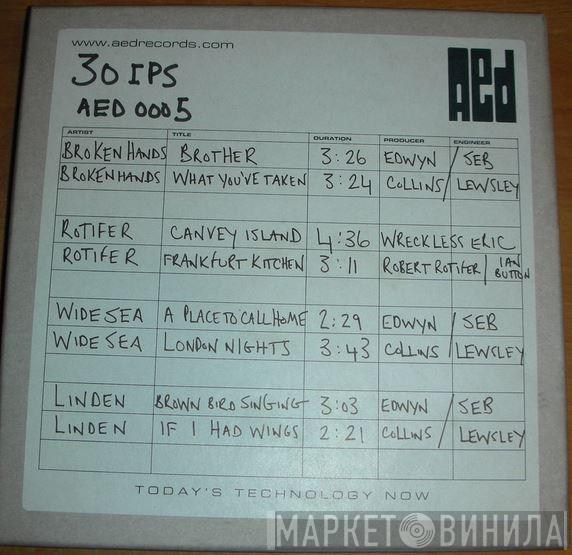 www.aedrecords.com
Aed
30 IPS
AED 0005
ARTIST TITLE DURATION PRODUCER ENGINEER
BROKEN HANDS BROTHER 3:26 EDWYN / SEB
BROKENHANDS WHAT YOU'VE TAKEN 3:24 COLLINS / LEWSLEY
ROTIFER CANVEY ISLAND 4:36 WRECKLESS ERIC
ROTIFER FRANKFURT KITCHEN 3:11 ROBERT ROTIFER / IAN BUTTON
WIDESEA A PLACE TO CALL HOME 2:29 EDWYN / SEB
WIDE SEA LONDON NIGHTS 3:43 COLLINS / LEWSLEY
LINDEN BROWN BIRD SINGING 3:03 EDWYN / SEB
LINDEN IF I HAD WINGS 2:21 COLLINS / LEWSLEY
TODAY'S TECHNOLOGY NOW
МАРКЕТ ВИНИЛА